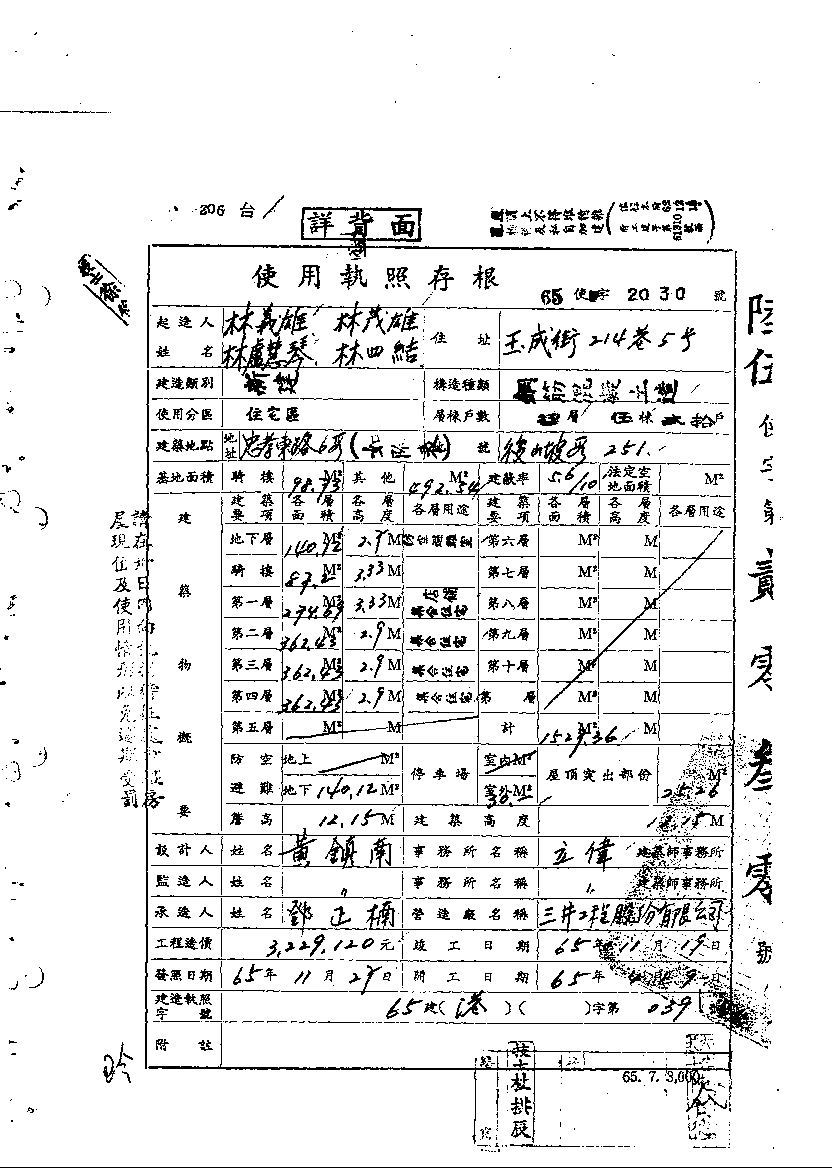 206 台
詳背面
使用執照存根
65 使字 2030 號
起造人姓名 林義雄、林茂雄 林盧慧琴、林四結 住址 玉成街214巷5号
建造類別 新建 構造種類 鋼筋混凝土造
使用分區 住宅區 層棟戶數 層 伍棟 貳拾戶
建築地點 地址 忠孝東路6段 號 後山坡段 251
基地面積 騎樓 98.93 M² 其他 492.54 M² 建蔽率 5.6/10 法定空地面積 M²
建築物概要
建築要項 各層面積 各層高度 各層用途 建築要項 各層面積 各層高度 各層用途
地下層 140.12 M² 2.9 M 第六層 M² M
騎樓 87.2 M² 3.33 M 第七層 M² M
第一層 294.69 M² 3.33 M 店舖 集合住宅 第八層 M² M
第二層 362.45 M² 2.9 M 集合住宅 第九層 M² M
第三層 362.45 M² 2.9 M 集合住宅 第十層 M² M
第四層 362.45 M² 2.9 M 集合住宅 第 層 M² M
第五層 M² M 計 1529.36 M² M
防空避難 地上 M² 停車場 室內 M² 屋頂突出部份 25.26 M²
地下 140.12 M² 室外 M²
簷高 12.15 M 建築高度 12.15 M
設計人 姓名 黃鎮南 事務所名稱 立偉 建築師事務所
監造人 姓名 〃 事務所名稱 〃 建築師事務所
承造人 姓名 鄧正楠 營造廠名稱 三井工程股份有限公司
工程造價 3,229,120 元 竣工日期 65年11月19日
發照日期 65年11月27日 開工日期 65年4月9日
建造執照字號 65建(港)( )字第 039 號
附註
65. 7. 3,000
技士杜排辰
陸伍使字第貳零叁零號